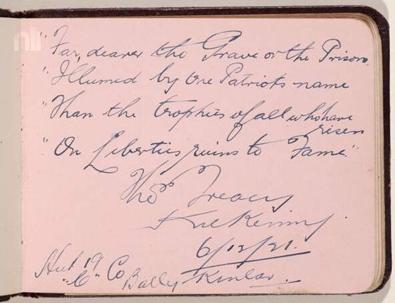 "Far, dearer the Grave or the Prison,
"Illumed by one Patriots name
"Than the trophies of all who have
risen
"On Liberties ruins to Fame"
Thos Treacy
Kilkenny.
6/12/21.
Hut 19
"C" Co Bally Kinlar.